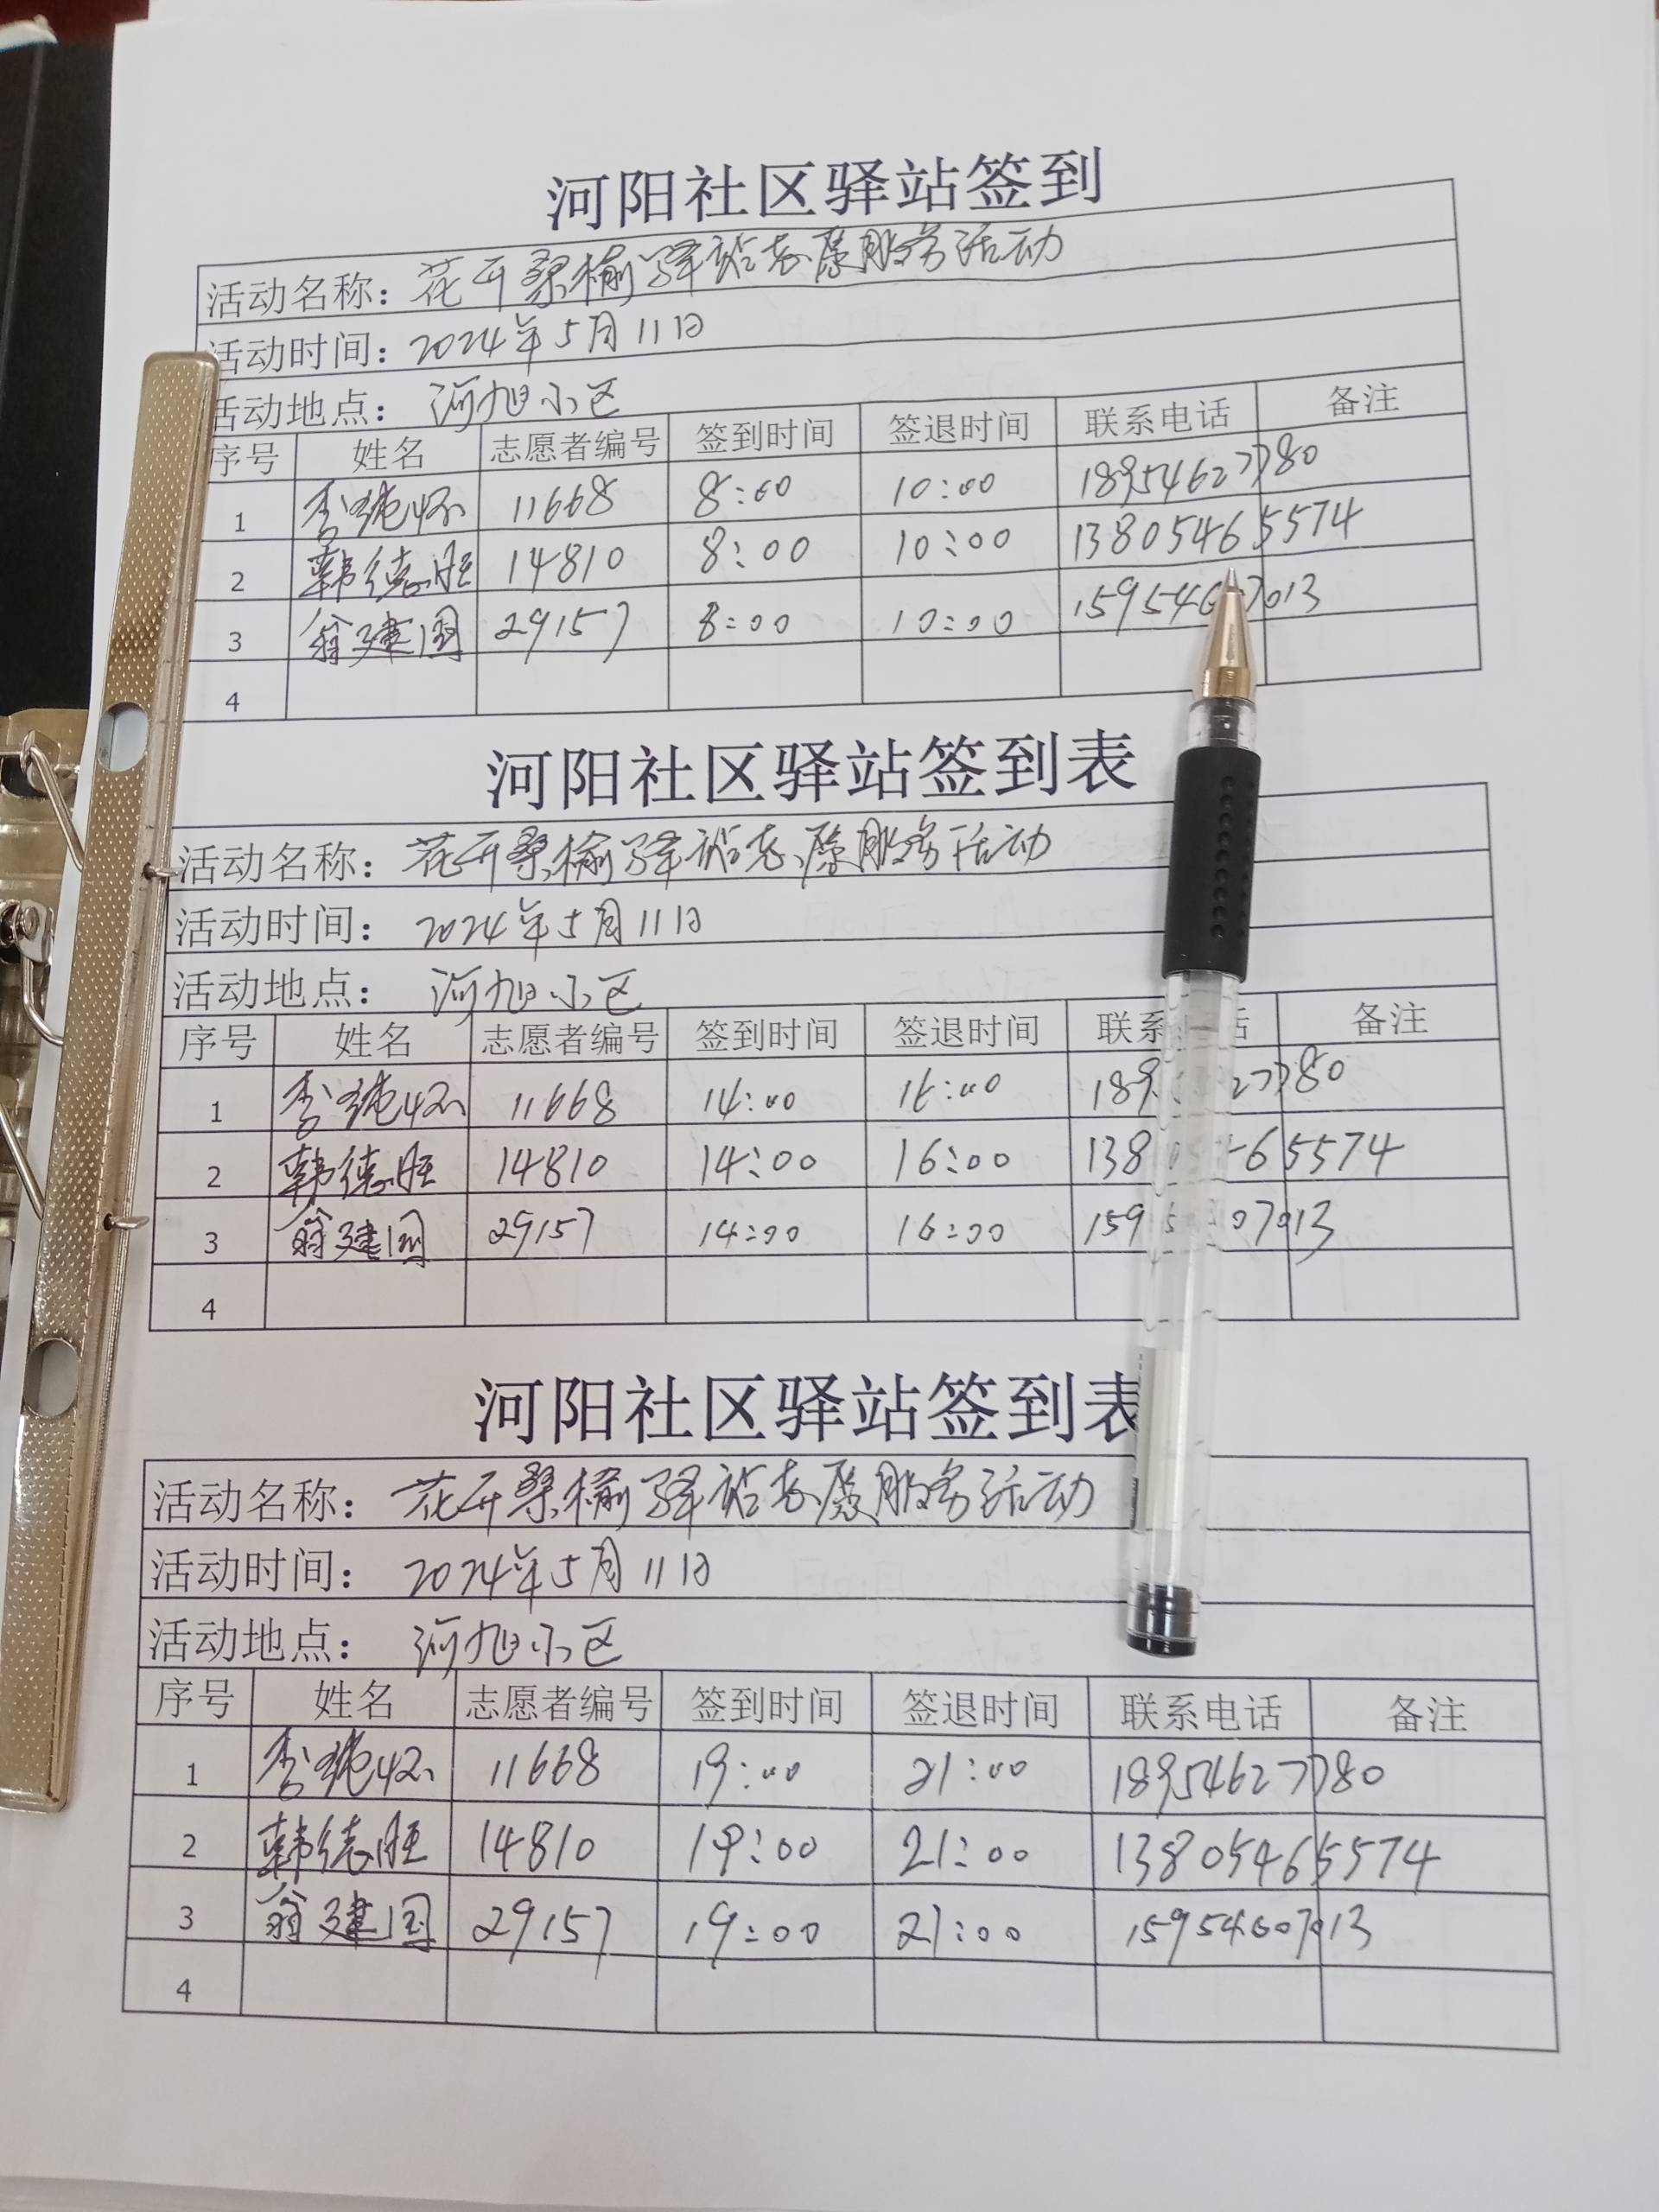 河阳社区驿站签到
活动名称：花开桑榆驿站志愿服务活动
活动时间：2024年5月11日
活动地点：河旭小区
序号 姓名 志愿者编号 签到时间 签退时间 联系电话 备注
1 李 11668 8:00 10:00 18954627780
2 韩德旺 14810 8:00 10:00 13805465574
3 翁建国 29157 8:00 10:00
4
河阳社区驿站签到表
活动名称：花开桑榆驿站志愿服务活动
活动时间：2024年5月11日
活动地点：河旭小区
序号 姓名 志愿者编号 签到时间 签退时间 联系 话 备注
1 李 11668 14:00 16:00
2 韩德旺 14810 14:00 16:00
3 翁建国 29157 14:00 16:00
4
河阳社区驿站签到表
活动名称：花开桑榆驿站志愿服务活动
活动时间：2024年5月11日
活动地点：河旭小区
序号 姓名 志愿者编号 签到时间 签退时间 联系电话 备注
1 李 11668 19:00 21:00 18954627780
2 韩德旺 14810 19:00 21:00 13805465574
3 翁建国 29157 19:00 21:00 15954607013
4